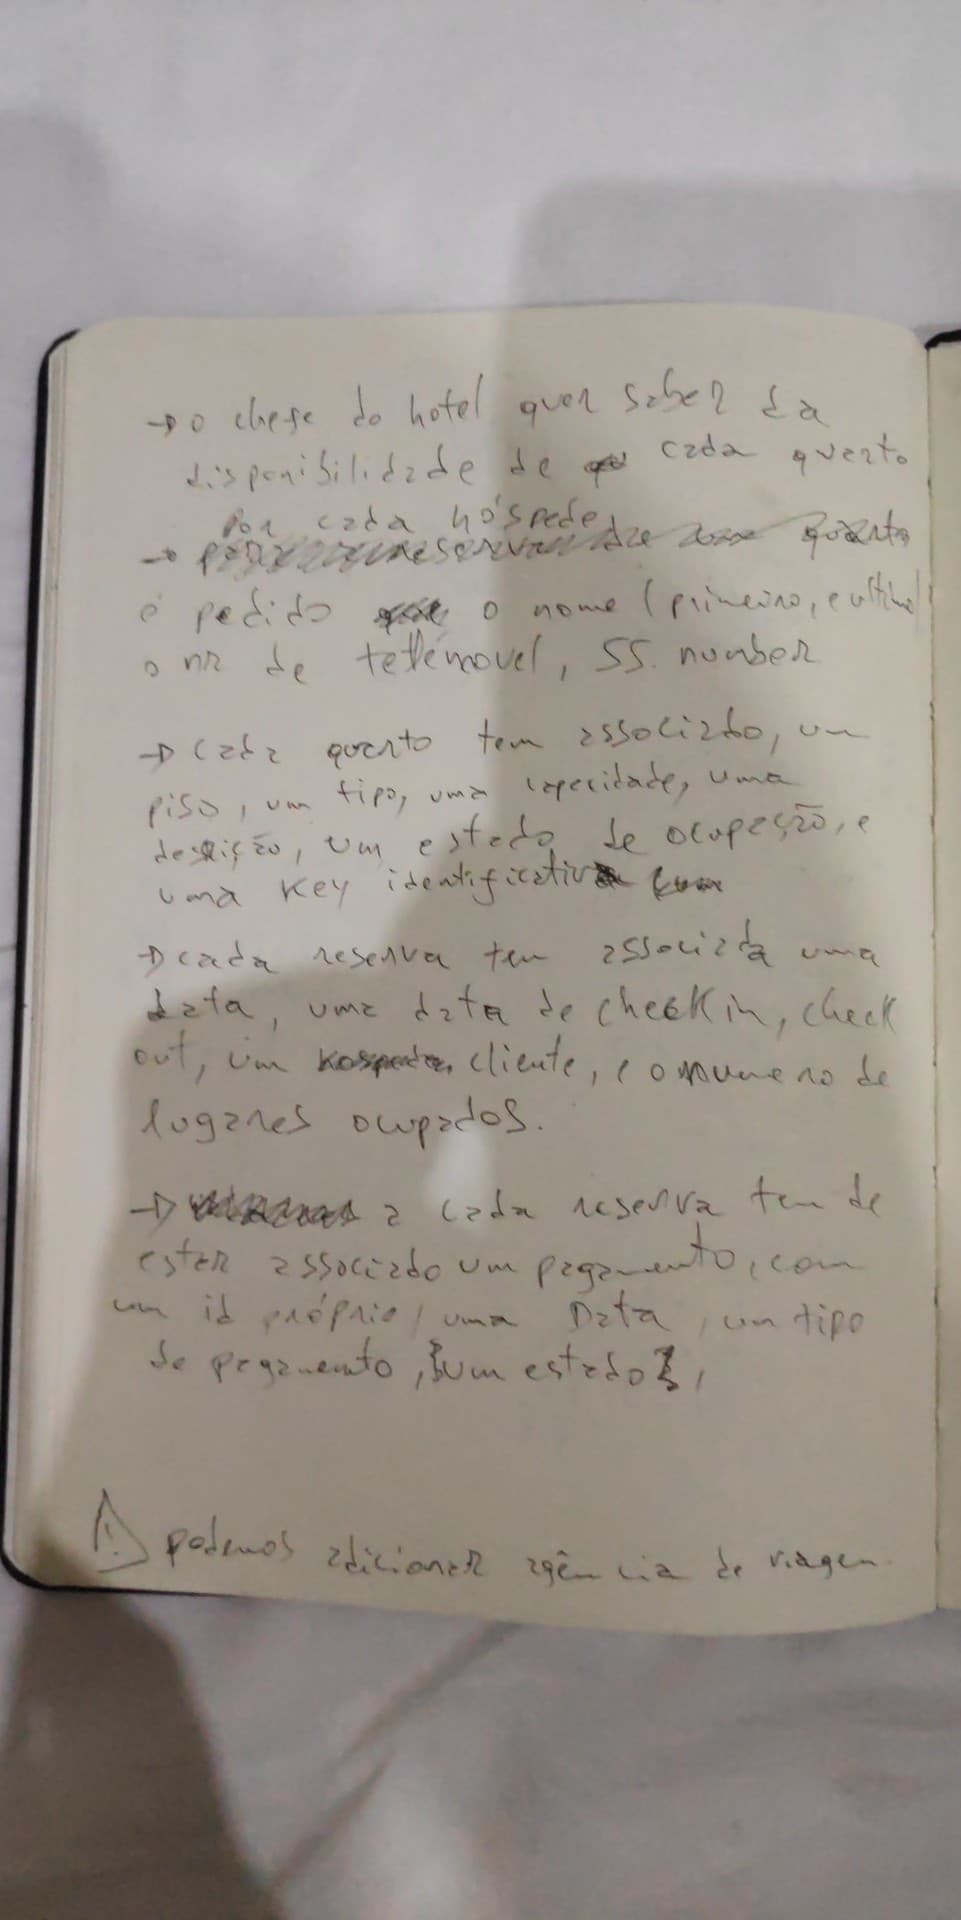 → o chefe do hotel quer saber da
disponibilidade de cada quarto
por cada hóspede
→ quarto
é pedido o nome (primeiro, e ultimo)
o nr de telemovel, SS. number
→ cada quarto tem associado, um
piso, um tipo, uma capacidade, uma
descrição, um estado de ocupação, e
uma key identificativa
→ cada reserva tem associada uma
data, uma data de check in, check
out, um cliente, e o numero de
lugares ocupados.
→ a cada reserva tem de
estar associado um pagamento, com
um id próprio, uma Data, um tipo
de pagamento, {um estado},
⚠ podemos adicionar agência de viagem.